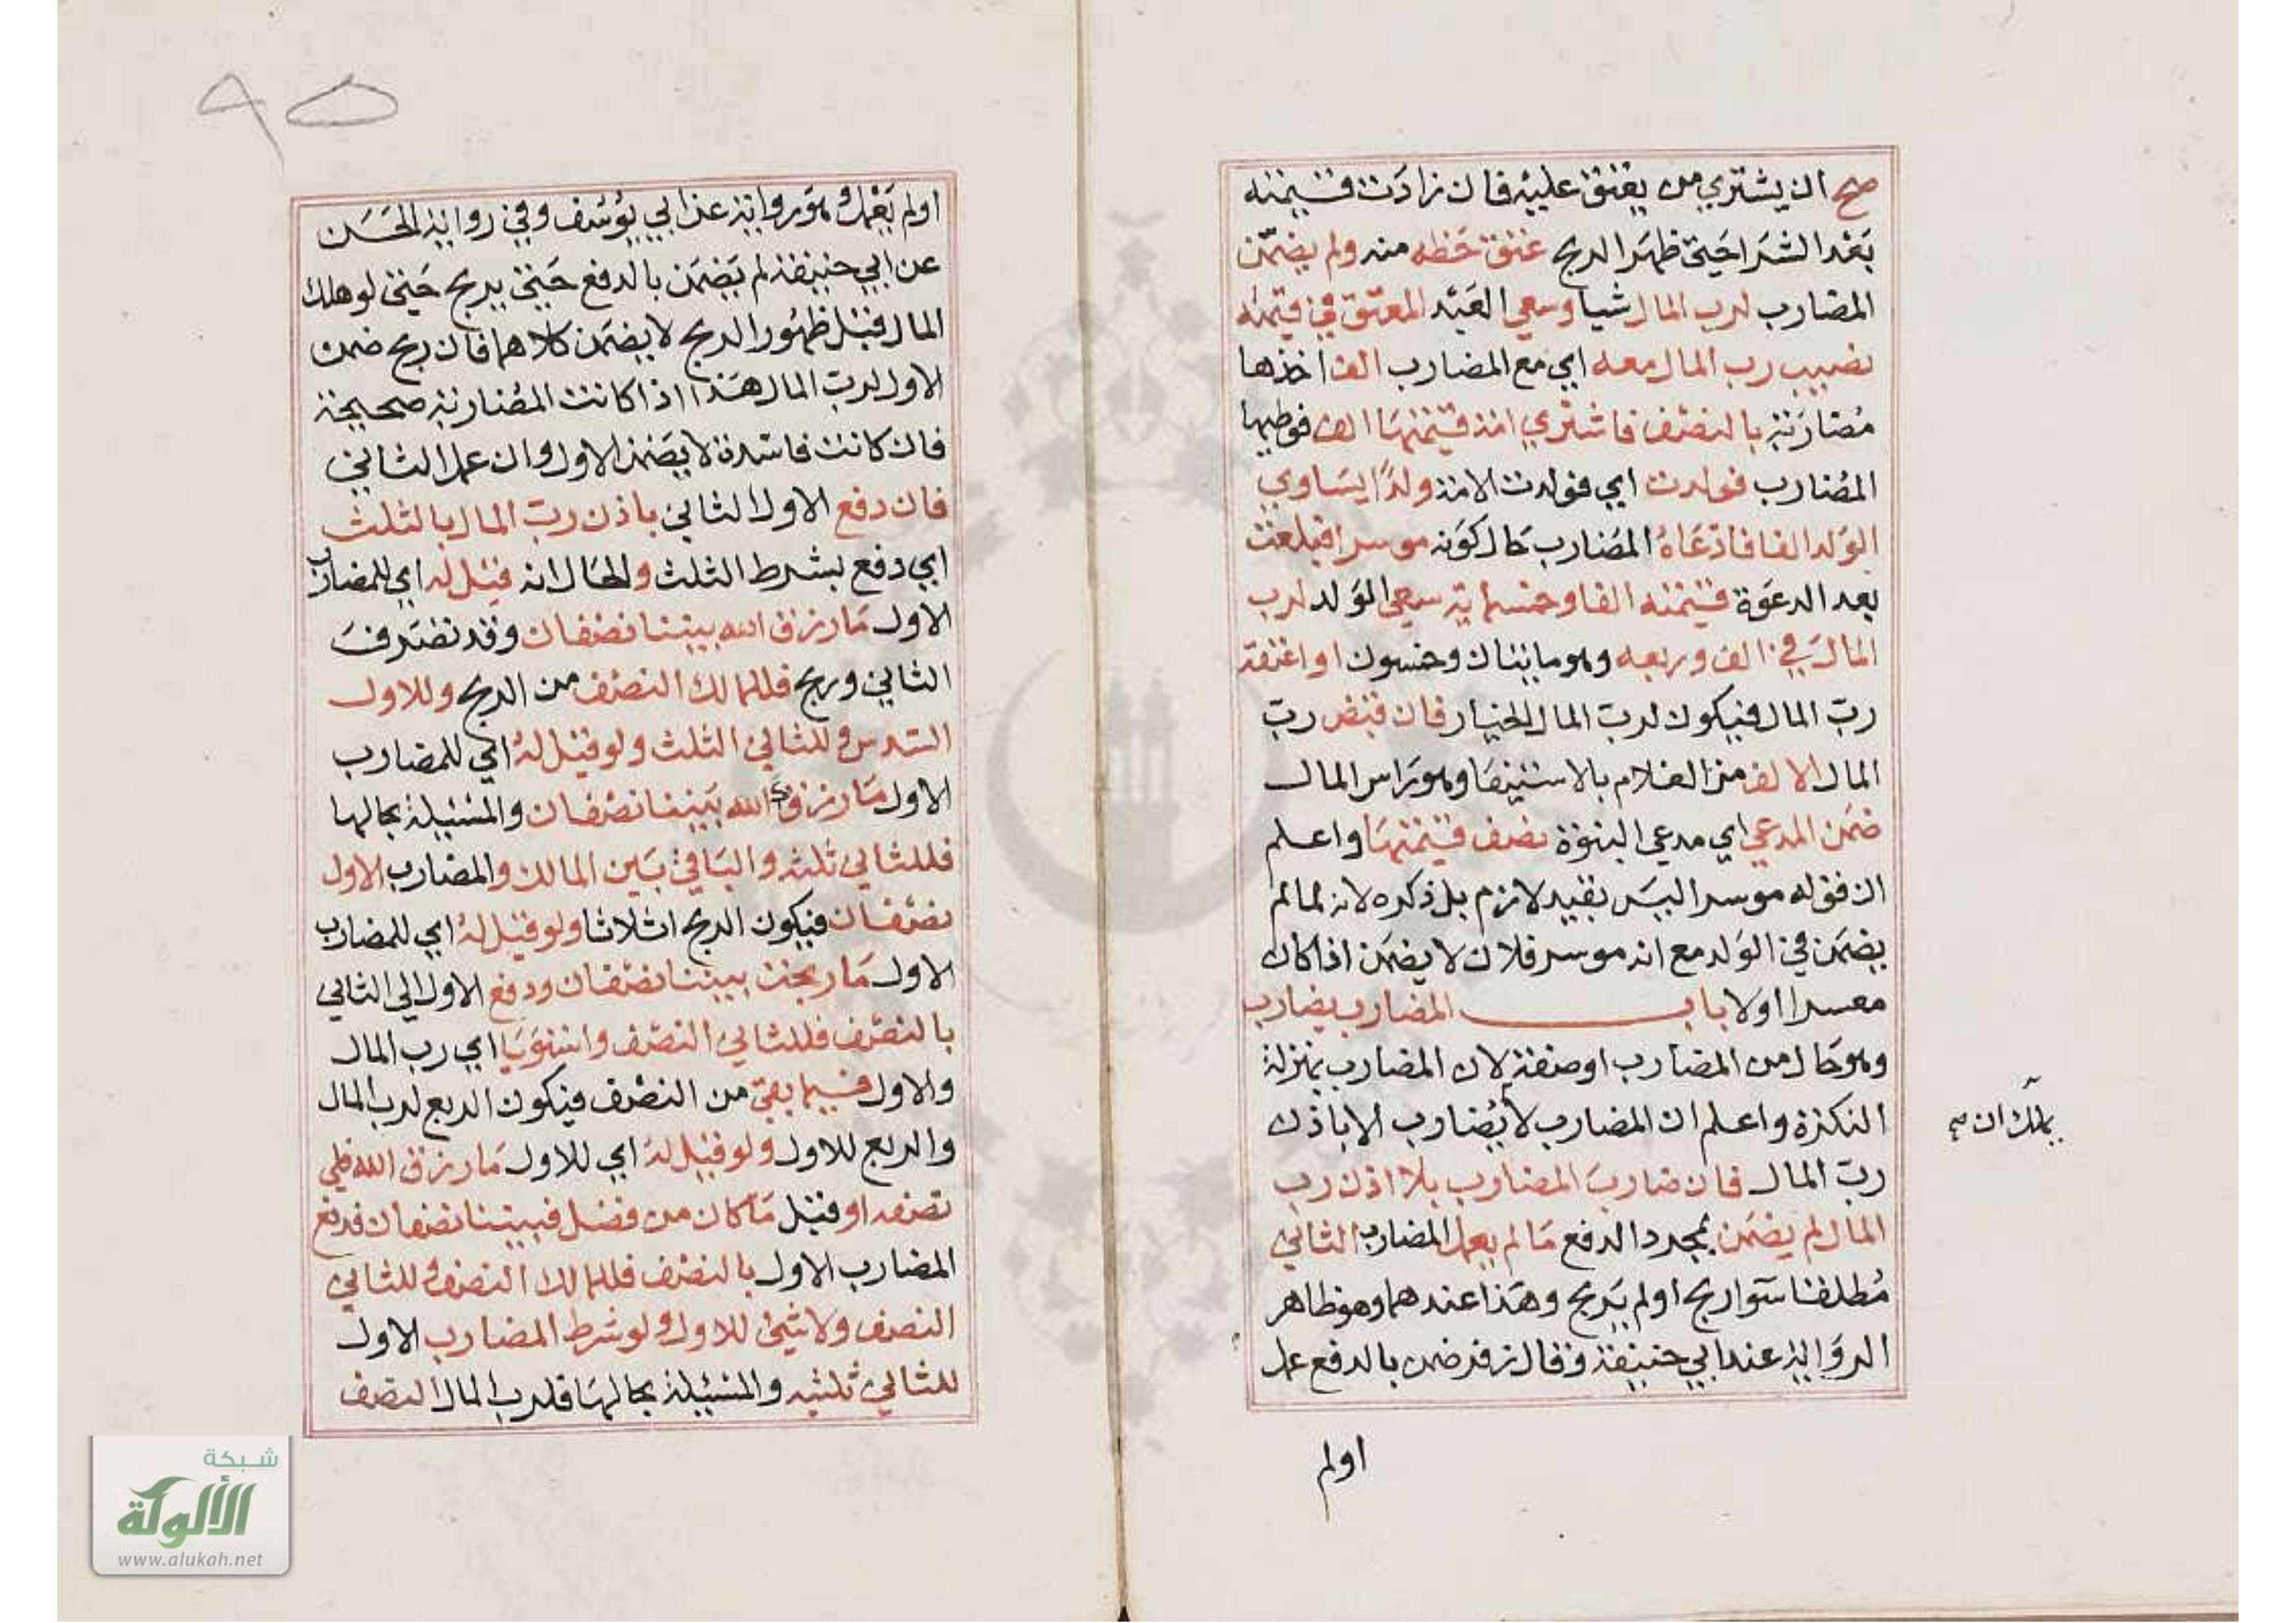 صح ان يشتري من يعتق عليه فان زادت قيمته
بعد الشرا حتي ظهر الربح عتق حظه منه ولم يضمن
المضارب لرب المال شيا وسعي العبد المعتق في قيمته
نصيب رب المال معه اي مع المضارب الف اخذها
مضاربة بالنصف فاشتري امة قيمتها الف فوطيها
المضارب فولدت اي فولدت الامة ولدا يساوي
الولد الفا فادعاه المضارب حال كونه موسرا فبلغت
بعد الدعوة قيمته الفا وخمسماية سعي الولد لرب
المال في الف وربعه وهو مايتان وخمسون او اعتقه
رب المال فيكون لرب المال الخيار فان قبض رب
المال الالف من الغلام بالاستيفا وهو راس المال
ضمن المدعي اي مدعي البنوة نصف قيمتها واعلم
ان قوله موسرا ليس بقيد لازم بل ذكره لانه لما لم
يضمن في الولد مع انه موسر فلان لا يضمن اذا كان
معسرا اولا باب المضارب يضارب
وهو حال من المضارب او صفة لان المضارب بمنزلة
النكرة واعلم ان المضارب لا يضارب الا باذن
يملك ان صح
رب المال فان ضارب المضارب بلا اذن رب
المال لم يضمن بمجرد الدفع ما لم يعمل المضارب الثاني
مطلقا سوا ربح اولم يربح وهذا عندهما وهو ظاهر
الرواية عند ابي حنيفة وقال زفر ضمن بالدفع عمل
اولم
٩٥
اولم يعمل وهو رواية عن ابي يوسف وفي رواية الحسن
عن ابي حنيفة لم يضمن بالدفع حتي يربح حتي لو هلك
المال قبل ظهور الربح لا يضمن كلاهما فان ربح ضمن
الاول لرب المال هذا اذا كانت المضاربة صحيحة
فان كانت فاسدة لا يضمن الاول وان عمل الثاني
فان دفع الاول الثاني باذن رب المال بالثلث
اي دفع بشرط الثلث والحال انه قيل له اي للمضارب
الاول ما رزق الله بيننا نصفان وقد تصرف
الثاني وربح فللمالك النصف من الربح وللاول
السدس وللثاني الثلث ولو قيل له اي للمضارب
الاول ما رزقك الله بيننا نصفان والمسيلة بحالها
فللثاني ثلثه والباقي بين المالك والمضارب الاول
نصفان فيكون الربح اثلاثا ولو قيل له اي للمضارب
الاول ما ربحت بيننا نصفان ودفع الاول الي الثاني
بالنصف فللثاني النصف واستويا اي رب المال
والاول فيما بقي من النصف فيكون الربع لرب المال
والربع للاول ولو قيل له اي للاول ما رزق الله فلي
نصفه او قيل ما كان من فضل فبيننا نصفان فدفع
المضارب الاول بالنصف فللمالك النصف وللثاني
النصف ولا شي للاول ولو شرط المضارب الاول
للثاني ثلثيه والمسيلة بحالها فلرب المال النصف
شبكة
الألوكة
www.alukah.net